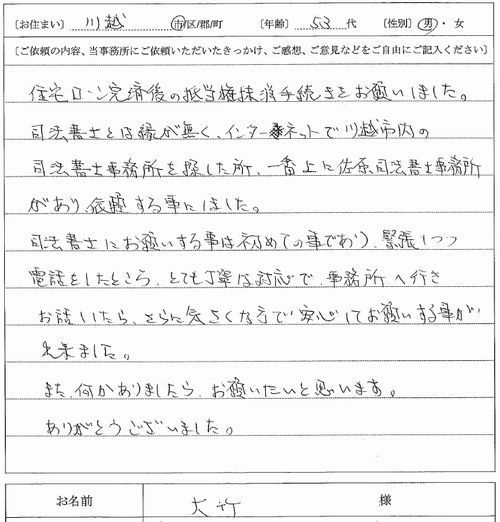 〔お住まい〕 川越 市/区/郡/町 〔年齢〕 53 代 〔性別〕 男・女
〔ご依頼の内容、当事務所にご依頼いただいたきっかけ、ご感想、ご意見などをご自由にご記入ください〕
住宅ローン完済後の抵当権抹消手続きをお願いしました。
司法書士とは縁が無く、インターネットで川越市内の
司法書士事務所を探した所、一番上に佐原司法書士事務所
があり、依頼する事にしました。
司法書士にお願いする事は初めての事であり、緊張しつつ
電話をしたところ、とても丁寧な対応で、事務所へ行き
お話したら、さらに気さくな方で安心してお願いする事が
出来ました。
また、何かありましたら、お願いしたいと思います。
ありがとうございました。
お名前 大竹 様